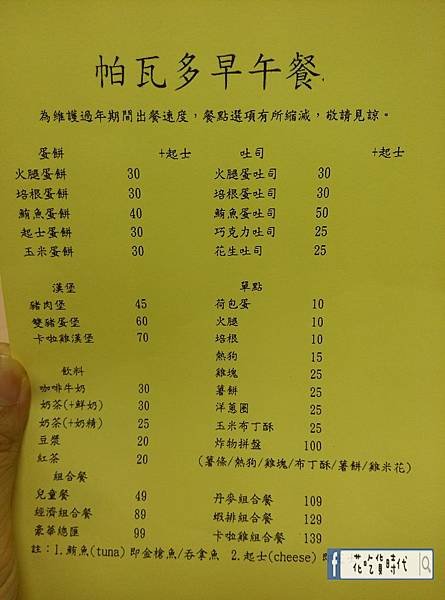 帕瓦多早午餐
為維護過年期間出餐速度，餐點選項有所縮減，敬請見諒。
蛋餅 +起士 吐司 +起士
火腿蛋餅 30 火腿蛋吐司 30
培根蛋餅 30 培根蛋吐司 30
鮪魚蛋餅 40 鮪魚蛋吐司 50
起士蛋餅 30 巧克力吐司 25
玉米蛋餅 30 花生吐司 25
漢堡 單點
豬肉堡 45 荷包蛋 10
雙豬蛋堡 60 火腿 10
卡啦雞漢堡 70 培根 10
熱狗 15
飲料 雞塊 25
咖啡牛奶 30 薯餅 25
奶茶(+鮮奶) 30 洋蔥圈 25
奶茶(+奶精) 25 玉米布丁酥 25
豆漿 20 炸物拼盤 100
紅茶 20 (薯條/熱狗/雞塊/布丁酥/薯餅/雞米花)
組合餐
兒童餐 49 丹麥組合餐 109
經濟組合餐 89 蝦排組合餐 129
豪華總匯 99 卡啦雞組合餐 139
註：1.鮪魚(tuna)即金槍魚/吞拿魚 2.起士(cheese)即
f 花吃貨時代